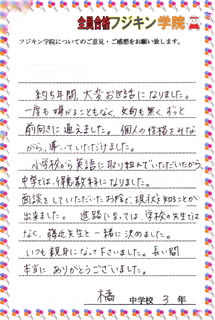 全員合格フジキン学院
フジキン学院についてのご意見・ご感想をお願い致します。
約5年間、大変お世話になりました。
一度も嫌がることもなく、文句も無く、ずっと
前向きに通えました。個人の性格をみな
がら、導いていただけました。
小学校から英語に取り組んでいただいたから、
中学では、得意教科になりました。
面談をしていただいたお陰で、現状を知ることが
出来ました。進路に至っては、学校の先生では
なく、藤近先生と一緒に決めました。
いつも親身になって下さいました。長い間
本当にありがとうございました。
橘 中学校 3 年